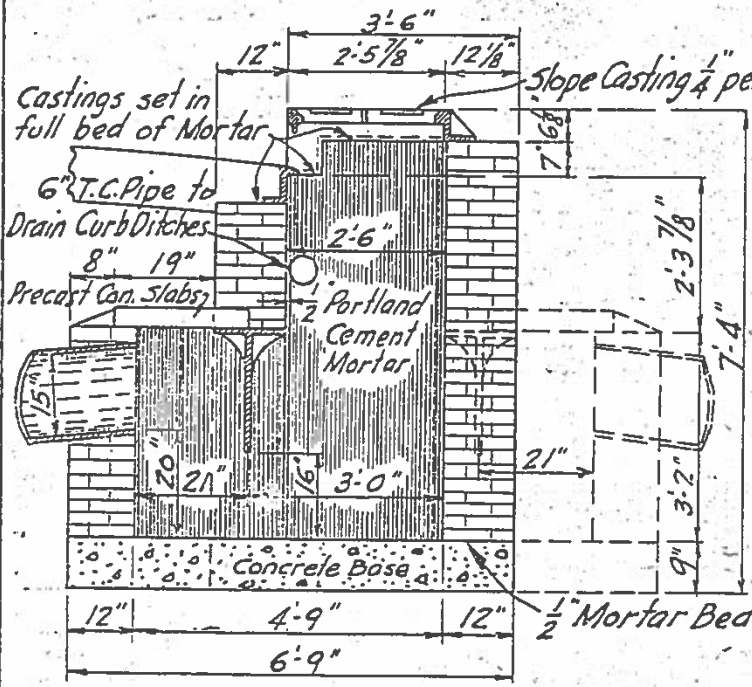 3'-6"
12"
2'-5 7/8"
12 1/8"
Slope Casting 1/4" pe
Castings set in
full bed of Mortar
6" T.C. Pipe to
Drain Curb Ditches
2'-6"
2'-3 7/8"
7'-4"
8"
19"
Precast Con. Slabs
1/2" Portland
Cement
Mortar
15"
20"
21"
16"
3'-0"
21"
3'-2"
9"
Concrete Base
1/2" Mortar Bed
12"
4'-9"
12"
6'-9"